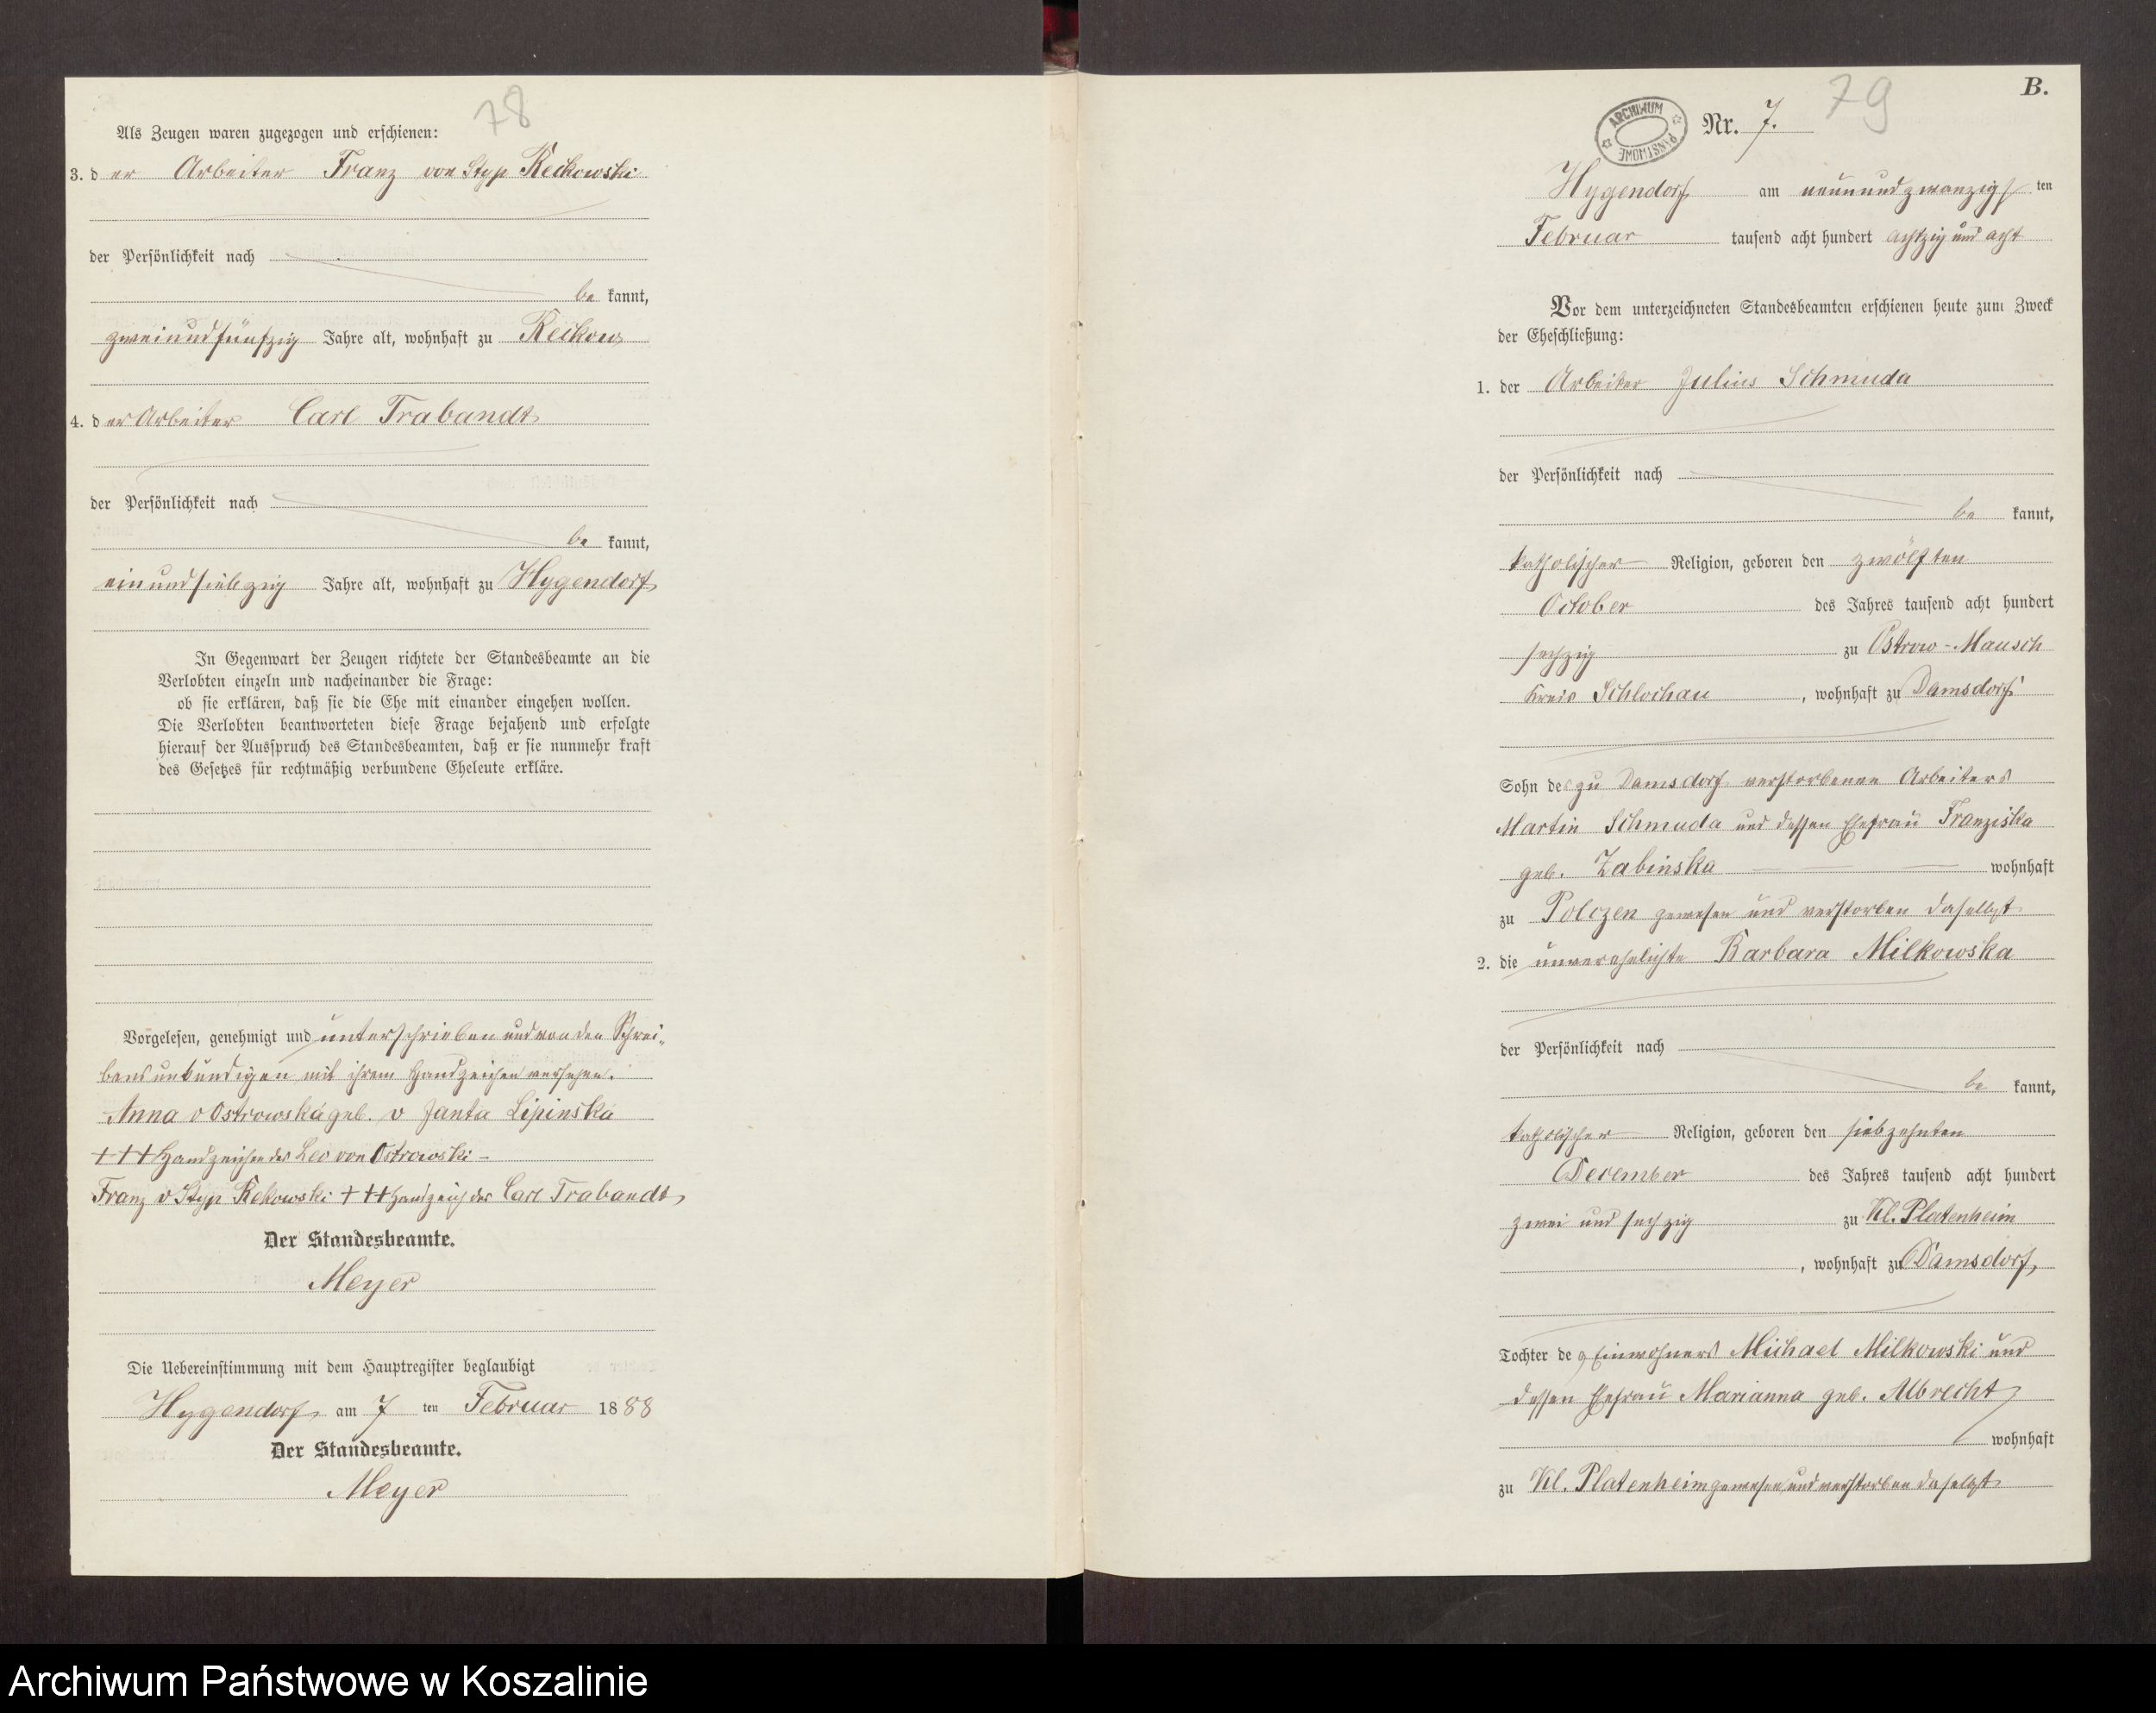 78
Als Zeugen waren zugezogen und erschienen:
3. der Arbeiter Franz von Styp Reckowski
der Persönlichkeit nach
be kannt,
zweiundfünfzig Jahre alt, wohnhaft zu Reckow
4. der Arbeiter Carl Trabandt
der Persönlichkeit nach
be kannt,
einundsiebzig Jahre alt, wohnhaft zu Hygendorf
In Gegenwart der Zeugen richtete der Standesbeamte an die
Verlobten einzeln und nacheinander die Frage:
ob sie erklären, daß sie die Ehe mit einander eingehen wollen.
Die Verlobten beantworteten diese Frage bejahend und erfolgte
hierauf der Ausspruch des Standesbeamten, daß er sie nunmehr kraft
des Gesetzes für rechtmäßig verbundene Eheleute erkläre.
Vorgelesen, genehmigt und unterschrieben und von den Schrei-
bensunkundigen mit ihrem Handzeichen versehen.
Anna v Ostrowska geb. v Janta Lipinska
+++ Handzeichen des Leo von Ostrowski -
Franz v Styp Rekowski +++ Handzeich des Carl Trabandt
Der Standesbeamte.
Meyer
Die Uebereinstimmung mit dem Hauptregister beglaubigt
Hygendorf am 7 ten Februar 1888
Der Standesbeamte.
Meyer
B.
79
ARCHIWUM PAŃSTWOWE
Nr. 7.
Hygendorf am neunundzwanzigsten
Februar tausend acht hundert achtzig und acht
Vor dem unterzeichneten Standesbeamten erschienen heute zum Zweck
der Eheschließung:
1. der Arbeiter Julius Schmuda
der Persönlichkeit nach
be kannt,
katholischer Religion, geboren den zwölften
October des Jahres tausend acht hundert
sechzig zu Ostrow-Mausch
Kreis Schlochau, wohnhaft zu Damsdorf
Sohn des zu Damsdorf verstorbenen Arbeiters
Martin Schmuda und dessen Ehefrau Franziska
geb. Zabinska wohnhaft
zu Polczen gewesen und verstorben daselbst
2. die unverehelichte Barbara Milkowska
der Persönlichkeit nach
be kannt,
katholischer Religion, geboren den siebzehnten
December des Jahres tausend acht hundert
zwei und sechzig zu Kl. Platenheim
, wohnhaft zu Damsdorf,
Tochter des Einwohners Michael Milkowski und
dessen Ehefrau Marianna geb. Albrecht
wohnhaft
zu Kl. Platenheim gewesen und verstorben daselbst
Archiwum Państwowe w Koszalinie